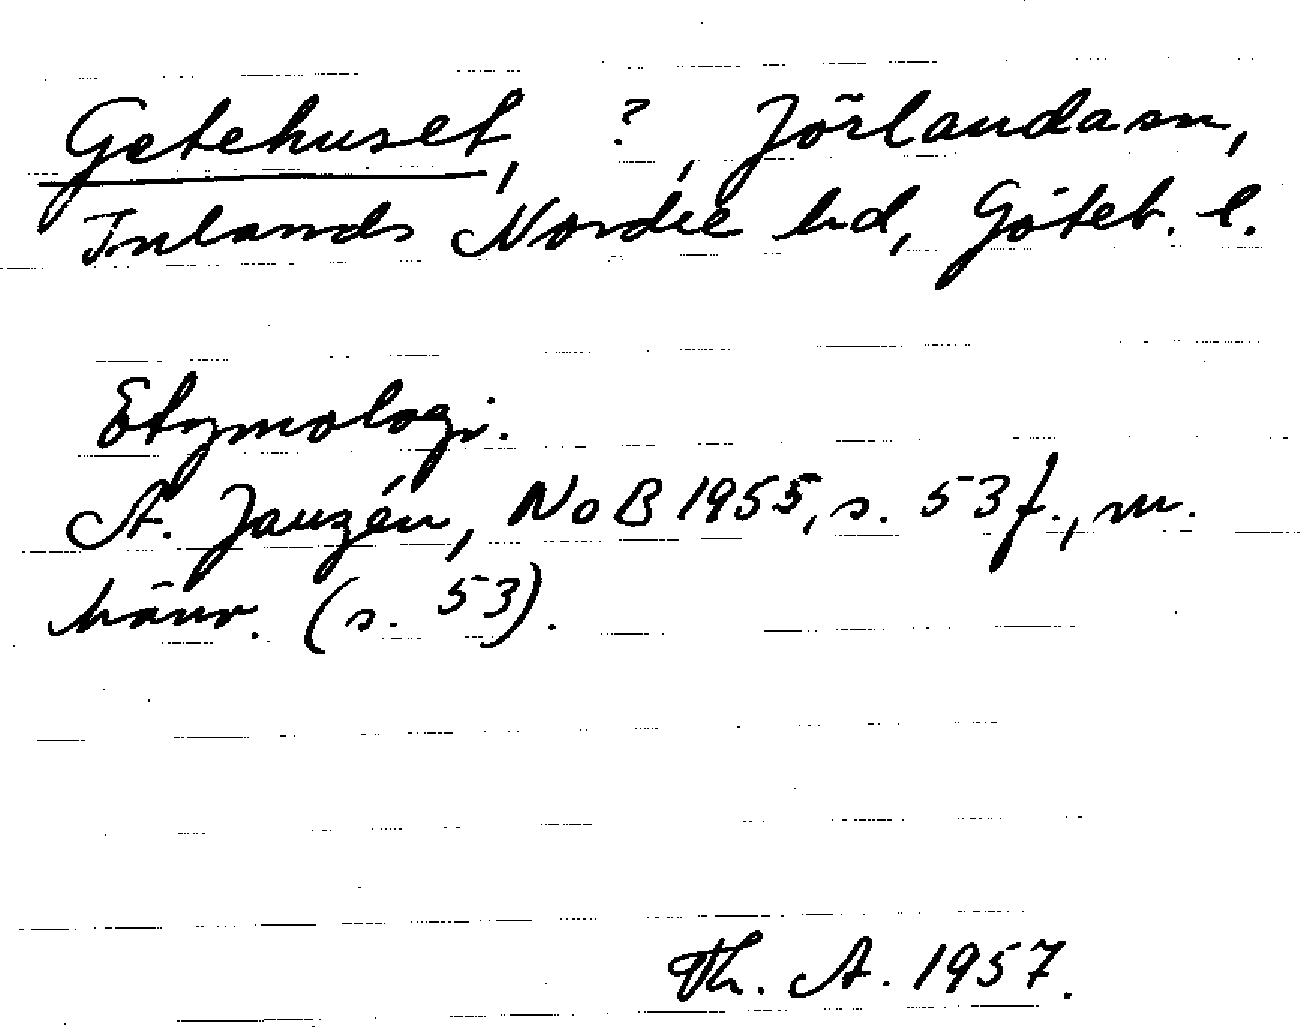 Getehuset, ?, Jörlanda sn,
Inlands Nordre hd, Göteb. l.
Etymologi.
A. Janzén, NoB 1955, s. 53 f., m.
hänv. (s. 53).
Th. A. 1957.